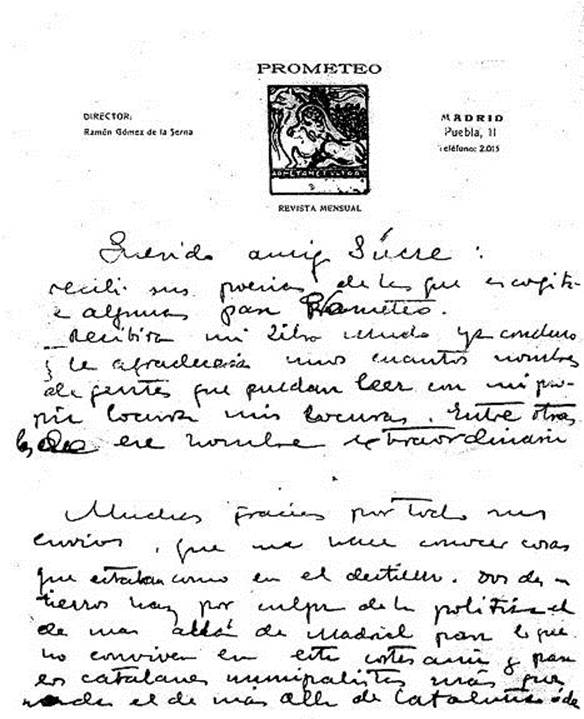 PROMETEO
DIRECTOR:
Ramón Gómez de la Serna
MADRID
Puebla, 11
Teléfono: 2.015
REVISTA MENSUAL
Querido amigo Súcre:
recibi sus poesias de las que escogite
e algunas para Prometeo.
Recibira mi Libro mudo ya
le agradeceria unos cuantos nombres
de gentes que puedan leer con mi pro-
pia locura mis locuras. Entre otras
ese nombre extraordinario
Muchas gracias por todo sus
envios, que me hace conocer cosas
que estaban como en el destierro. Dos des-
tierros hay por culpa de la politica el
de mas allá de Madrid para lo que
no conviven en este y para
los catalanes municipalistas más que
nada el de más alla de Cataluña